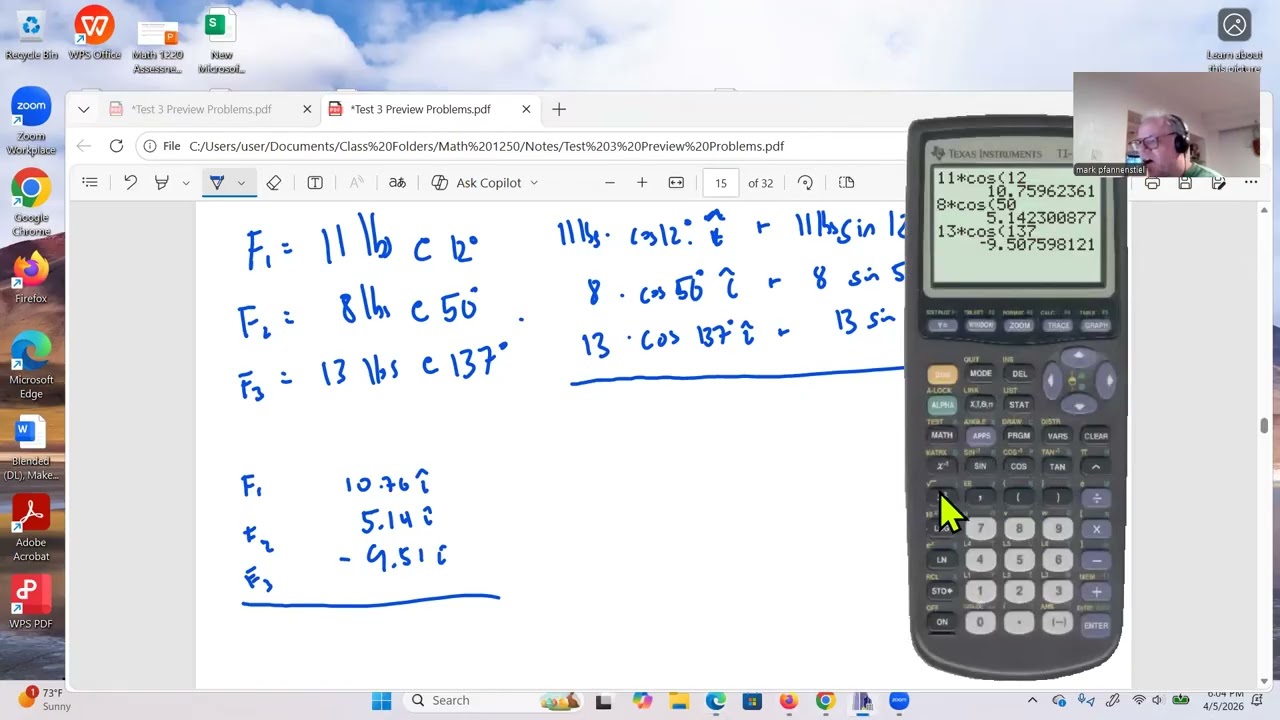 Recycle Bin
WPS Office
Math 1220 Assessne...
New Microsoi...
Learn about this picture
zoom
Zoom Workplace
Google Chrome
Firefox
Microsoft Edge
Blended (DL), Make...
Adobe Acrobat
WPS PDF
*Test 3 Preview Problems.pdf
*Test 3 Preview Problems.pdf
File C:/Users/user/Documents/Class%20Folders/Math%201250/Notes/Test%203%20Preview%20Problems.pdf
Ask Copilot
15 of 32
mark pfannenstiel
F₁ = 11 lb @ 12° 11 lbs · cos 12° î + 11 lbs sin 12
F₂ = 8 lbs @ 50° 8 · cos 50° î + 8 sin 5
F̄₃ = 13 lbs @ 137° 13 · cos 137° î + 13 sin
F₁ 10.76 î
F₂ 5.14 î
F̄₃ - 9.51 î
TEXAS INSTRUMENTS TI-
11*cos(12
10.75962361
8*cos(50
5.142300877
13*cos(137
-9.507598121
Y= WINDOW ZOOM TRACE GRAPH
QUIT INS
2nd MODE DEL
A-LOCK LINK LIST
ALPHA X,T,θ,n STAT
TEST ANGLE DRAW DISTR
MATH APPS PRGM VARS CLEAR
MATRX SIN⁻¹ COS⁻¹ TAN⁻¹ π
x⁻¹ SIN COS TAN ^
√ EE { } e
x² , ( ) ÷
LOG 7 8 9 ×
LN 4 5 6 −
RCL L1 L2 L3 MEM
STO▸ 1 2 3 +
OFF
ON 0 . (−) ENTER
73°F
Sunny
Search
zoom
6:04 PM
4/5/2026